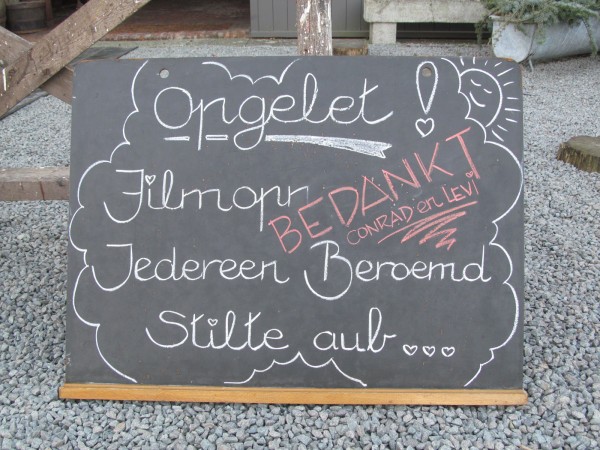 Opgelet!
Filmopn
BEDANKT
CONRAD en LEVI
Iedereen Beroemd
Stilte aub...